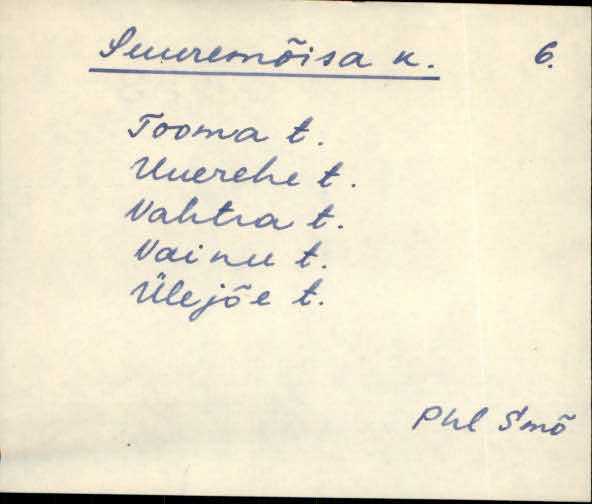 Suuremõisa k. 6.
Tooma t.
Uuerehe t.
Vahtra t.
Vainu t.
Ülejõe t.
Phl Smõ